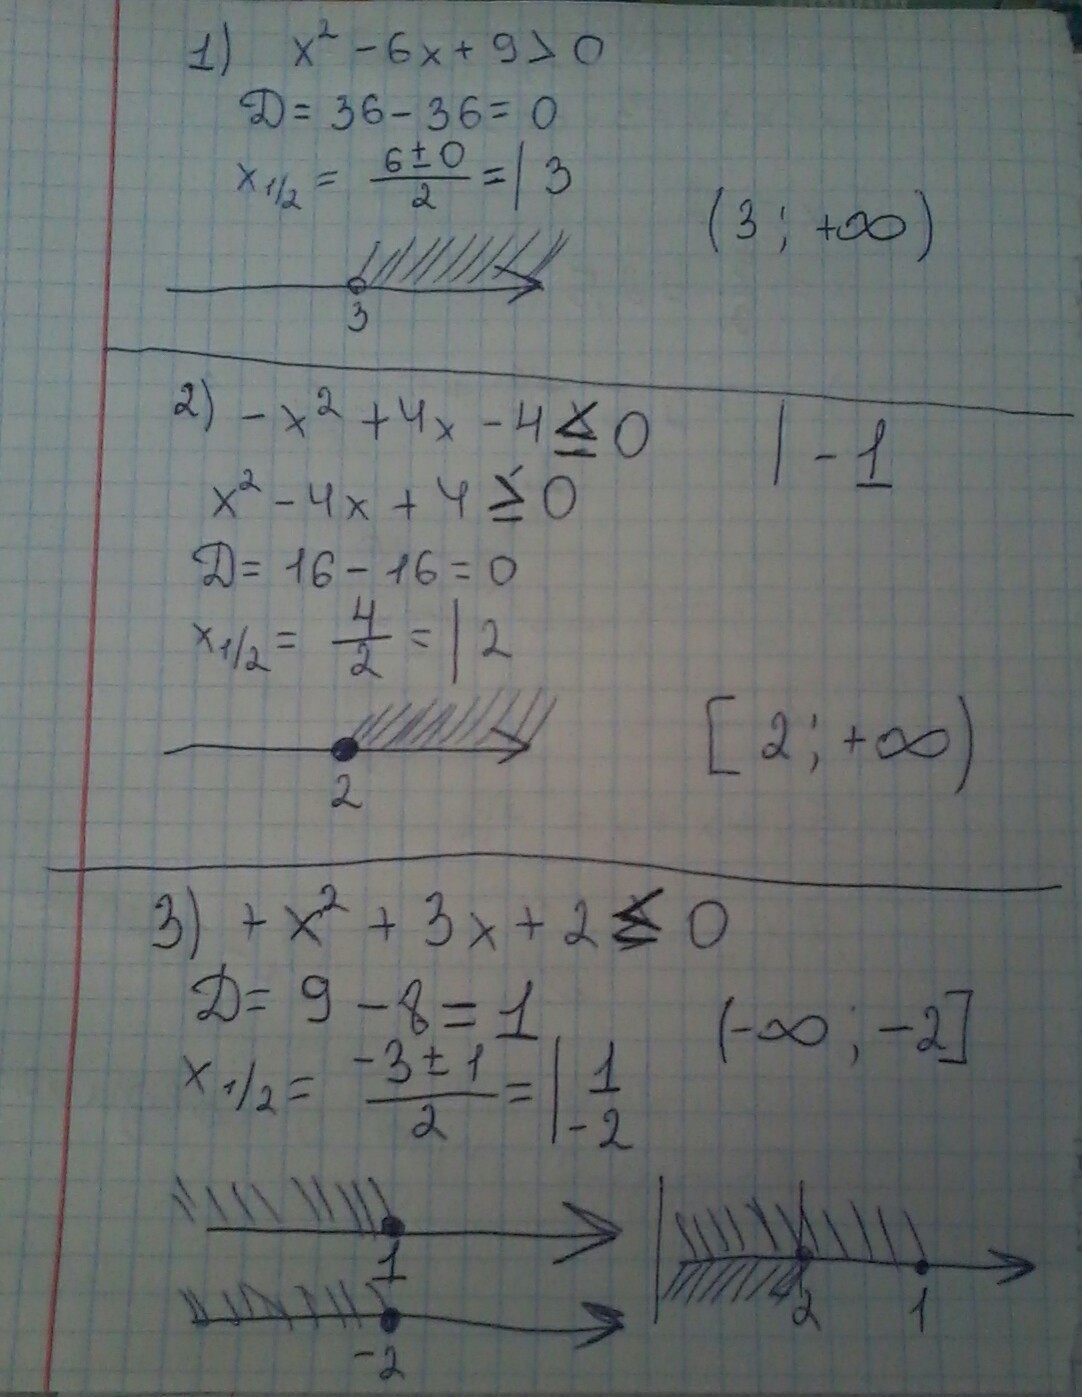 1) x² - 6x + 9 > 0
D = 36 - 36 = 0
x 1/2 = (6 ± 0)/2 = | 3
(3 ; +∞)
3
2) - x² + 4x - 4 ≤ 0 | -1
x² - 4x + 4 ≥ 0
D = 16 - 16 = 0
x 1/2 = 4/2 = | 2
[2 ; +∞)
2
3) + x² + 3x + 2 ≤ 0
D = 9 - 8 = 1
(-∞ ; -2]
x 1/2 = (-3 ± 1)/2 = | 1
-2
1
-2
2 1